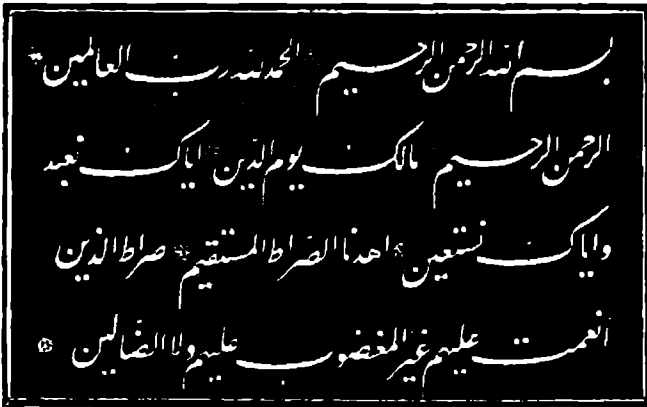 بسم الله الرحمن الرحيم * الحمد لله رب العالمين *
الرحمن الرحيم * مالك يوم الدين * اياك نعبد
واياك نستعين * اهدنا الصراط المستقيم * صراط الذين
أنعمت عليهم غير المغضوب عليهم ولا الضالين *